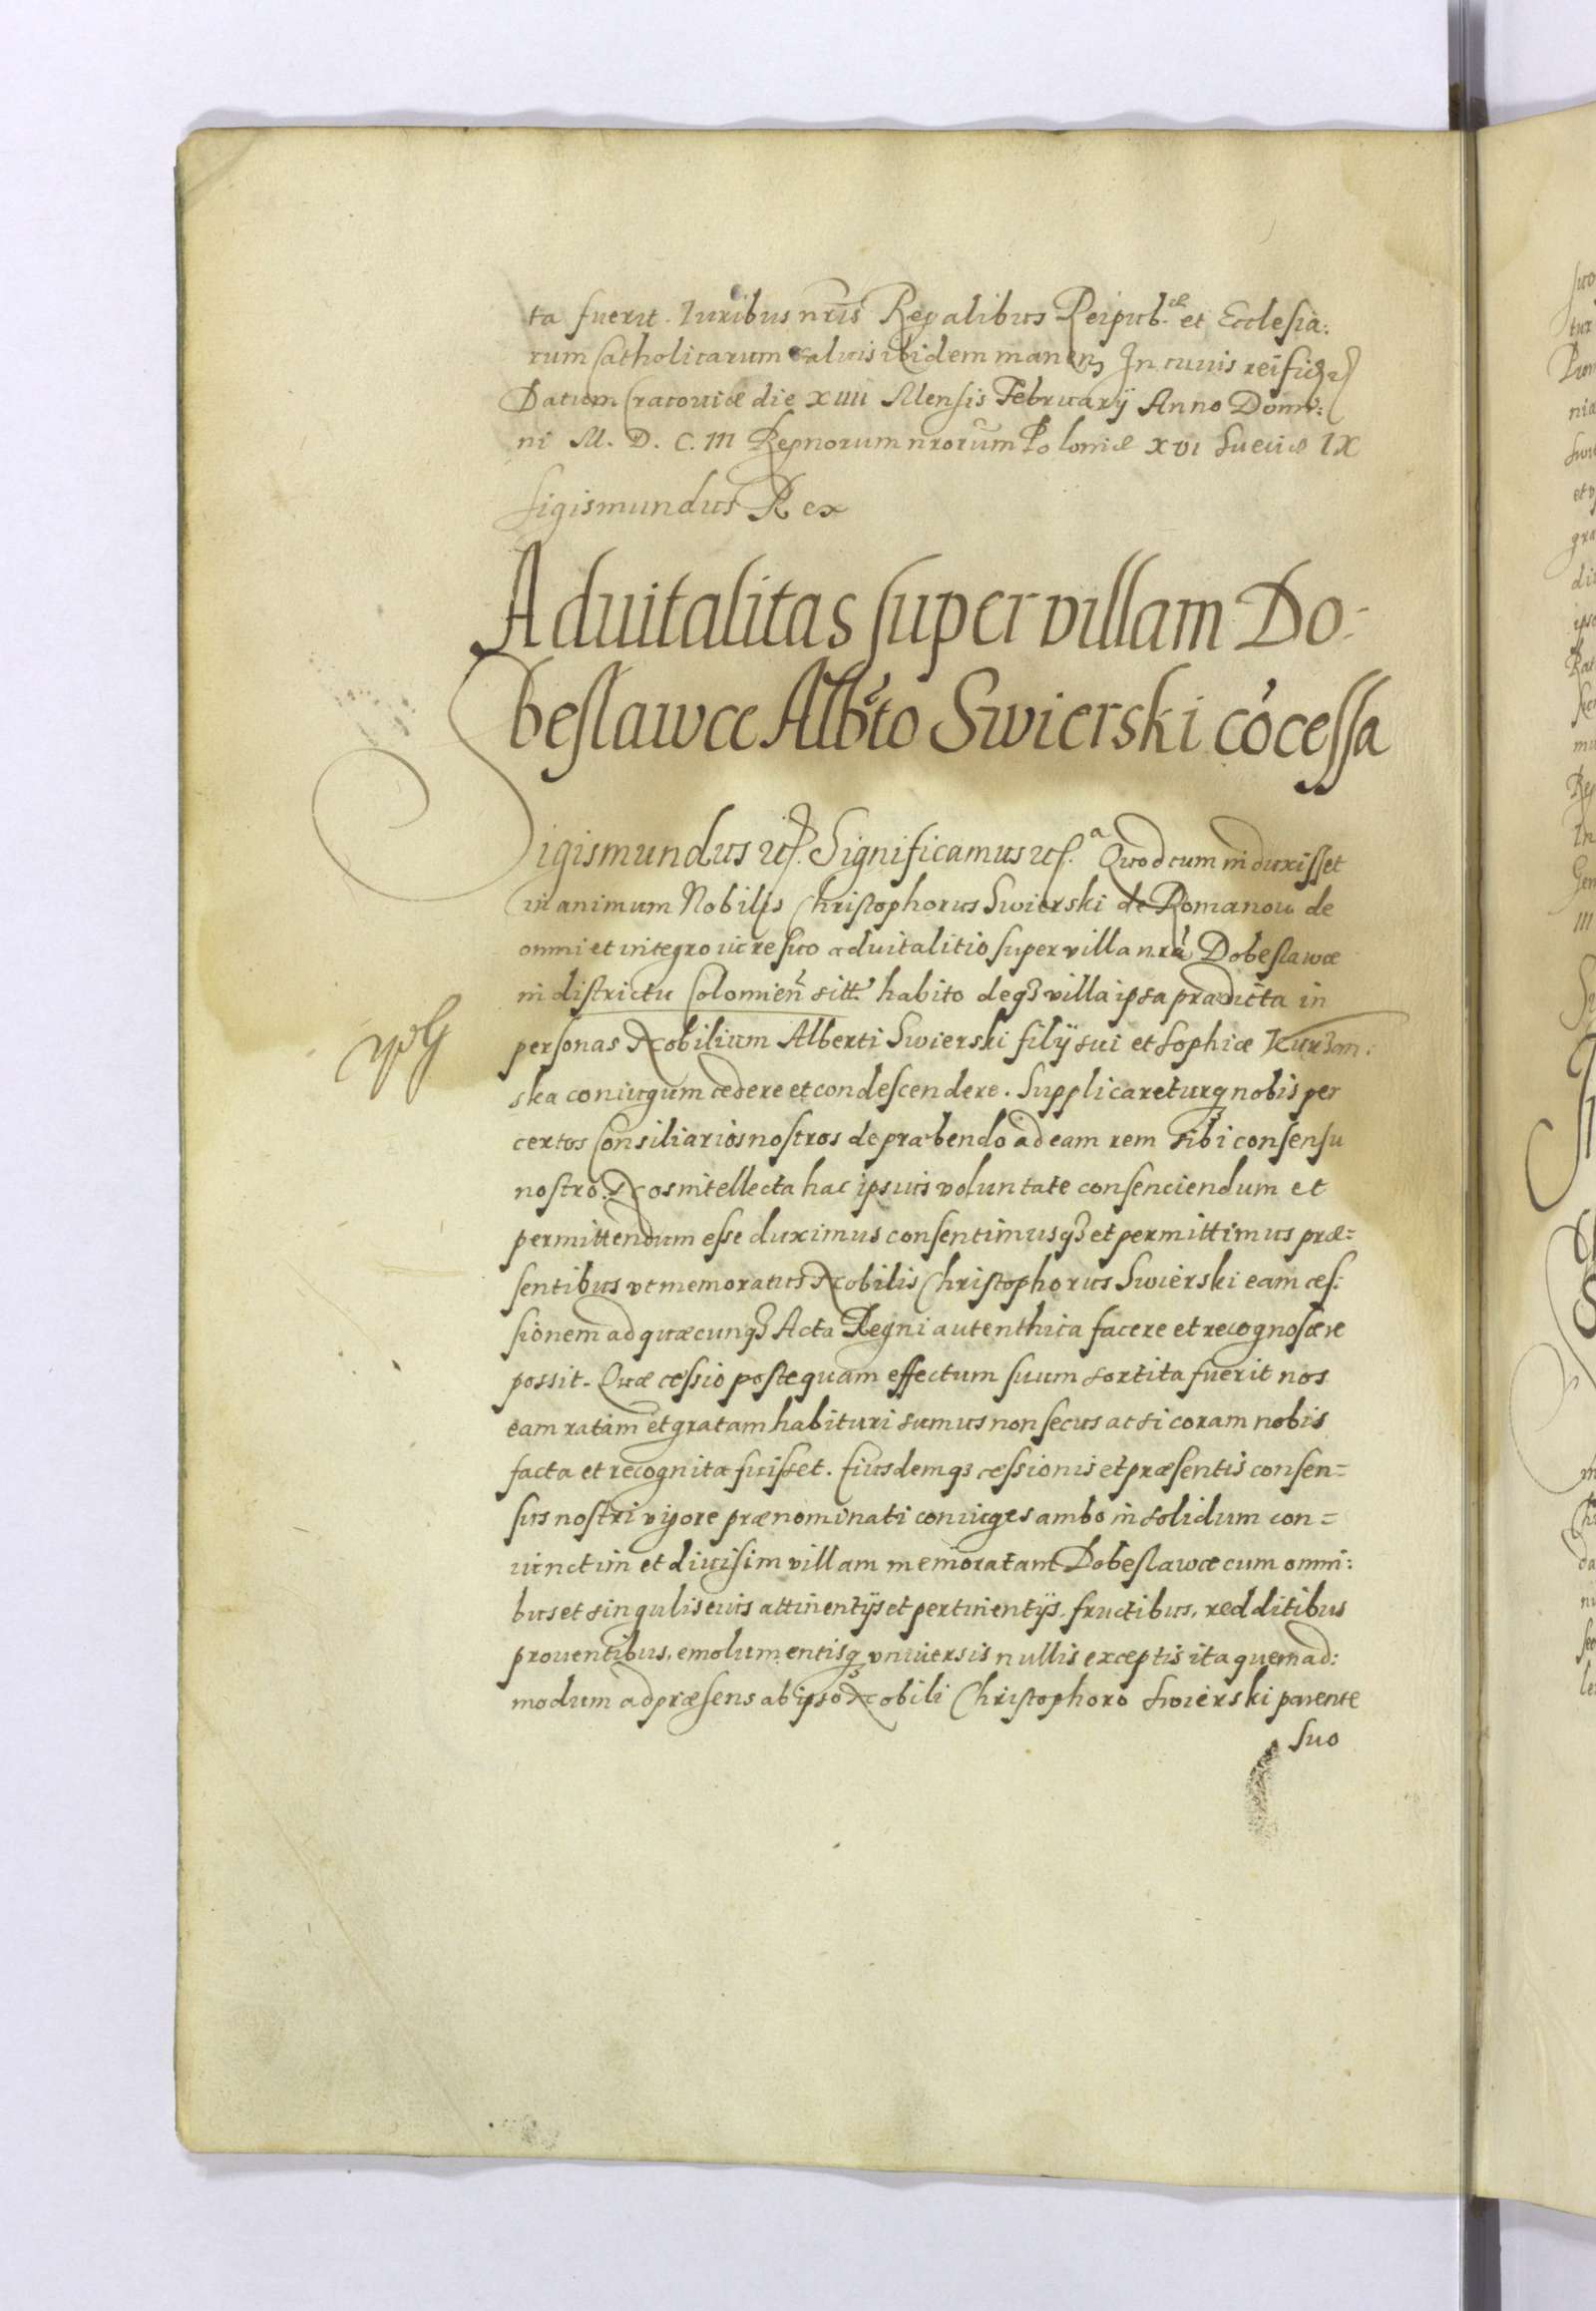 ta fuerit. Iuribus nris Regalibus Reipub. et Ecclesia:
rum Catholicarum salvis ibidem manen In cuius rei fid
Datum Cracouiæ die XIIII Mensis February Anno Domi:
ni M. D. C. III Regnorum nrorum Poloniæ XVI Sueciæ IX
Sigismundus Rex
Aduitalitas super villam Do-
beslawce Albto Swierski cócessa
Sigismundus Significamus Quod cum induxisset
in animum Nobilis Christophorus Swierski de Romanow de
omni et integro iure suo aduitalitio super villa nra Dobeslawce
in districtu Colomien sitt habito deq3 villa ipsa prædicta in
personas Nobilium Alberti Swierski filÿ sui et Sophiæ Kurzan:
ska coniugum cedere et condescendere. Supplicareturq3 nobis per
certos Consiliarios nostros de præbendo ad eam rem sibi consensu
nostro. Nos intellecta hac ipsius voluntate consenciendum et
permittendum esse duximus consentimusq3 et permittimus præ=
sentibus vt memoratus Nobilis Christophorus Swierski eam ces:
sionem ad quæcunq3 Acta Regni autenthica facere et recognoscere
possit. Quæ cessio postequam effectum suum sortita fuerit nos
eam ratam et gratam habituri sumus non secus ac si coram nobis
facta et recognita fuisset. Eiusdemq3 cessionis et præsentis consen=
sus nostri vigore prænominati coniuges ambo in solidum con=
iunctim et diuisim villam memoratam Dobeslawce cum omni:
bus et singulis eius attinentÿs et pertinentÿs, fructibus, redditibus
prouentibus, emolumentisq3 vniuersis nullis exceptis ita quemad:
modum ad præsens ab ipso Nobili Christophoro Swierski parente
suo